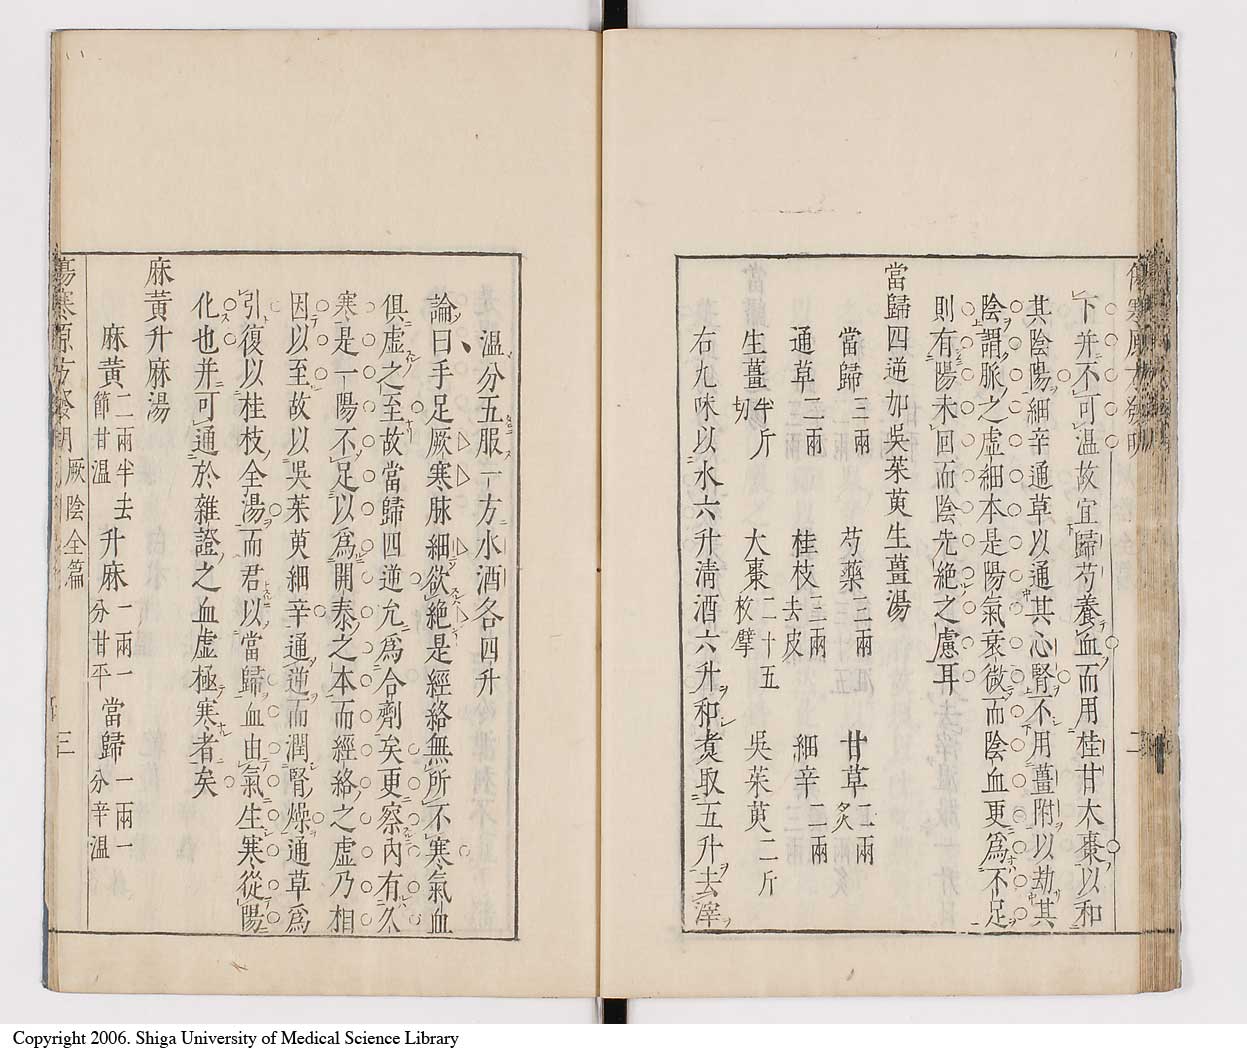 下并不可温故宜歸芍養血而用桂甘大棗以和
其陰陽細辛通草以通其心腎不用薑附以劫其
陰謂脈之虛細本是陽氣衰微而陰血更爲不足
則有陽未回而陰先絶之慮耳
當歸四逆加吳茱萸生薑湯
當歸三兩 芍藥三兩 甘草二兩炙
通草二兩 桂枝三兩去皮 細辛三兩
生薑半斤切 大棗二十五枚擘 吳茱萸二斤
右九味以水六升淸酒六升和煑取五升去滓
二
温分五服一方水酒各四升
論曰手足厥寒脉細欲絶是經絡無所不寒氣血
俱虛之至故當歸四逆允爲合劑矣更察內有久
寒是一陽不足以爲開泰之本而經絡之虛乃相
因以至故以吳茱萸細辛通逆而潤腎燥通草爲
引復以桂枝全湯而君以當歸血由氣生寒從陽
化也并可通於雜證之血虛極寒者矣
麻黃升麻湯
麻黃二兩半去節甘温 升麻一兩一分甘平 當歸一兩一分辛温
傷寒原方發明 厥陰全篇 三
Copyright 2006. Shiga University of Medical Science Library